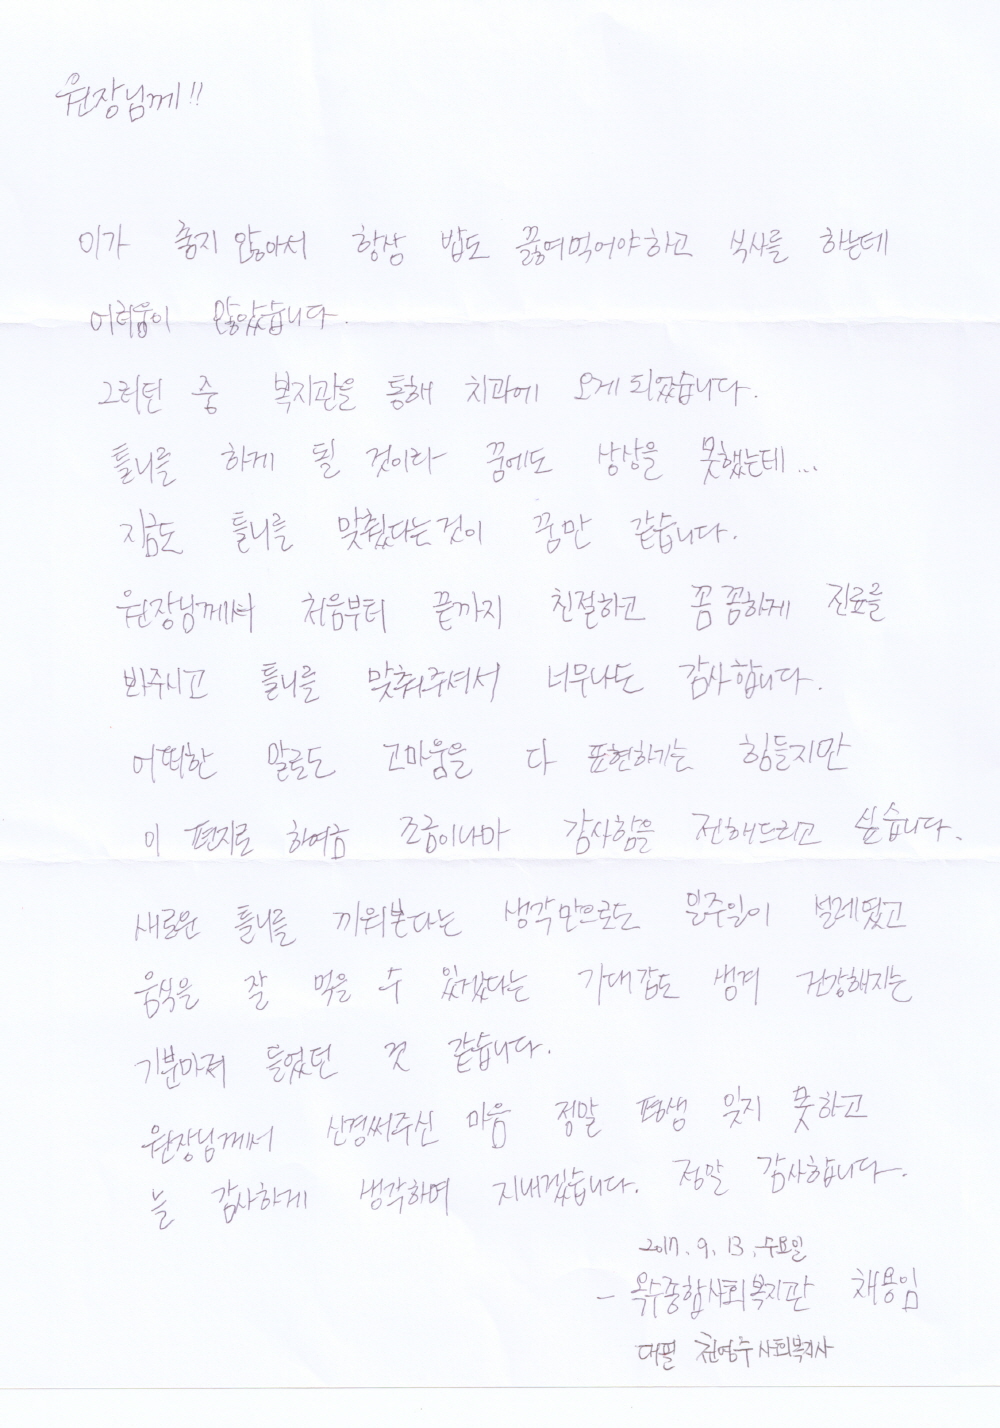 원장님께!!
이가 좋지 않아서 항상 밥도 끓여먹어야하고 식사를 하는데
어려움이 많았습니다.
그러던 중 복지관을 통해 치과에 오게 되었습니다.
틀니를 하게 될 것이라 꿈에도 상상을 못했는데...
지금도 틀니를 맞췄다는것이 꿈만 같습니다.
원장님께서 처음부터 끝까지 친절하고 꼼꼼하게 진료를
봐주시고 틀니를 맞춰주셔서 너무나도 감사합니다.
어떠한 말로도 고마움을 다 표현하기는 힘들지만
이 편지로 하여금 조금이나마 감사함을 전해드리고 싶습니다.
새로운 틀니를 끼워본다는 생각만으로도 일주일이 설레였고
음식을 잘 먹을 수 있겠다는 기대감도 생겨 건강해지는
기분마저 들었던 것 같습니다.
원장님께서 신경써주신 마음 정말 평생 잊지 못하고
늘 감사하게 생각하며 지내겠습니다. 정말 감사합니다.
2017. 9. 13. 수요일
- 옥수종합사회복지관 채용임
대필 천영주 사회복지사